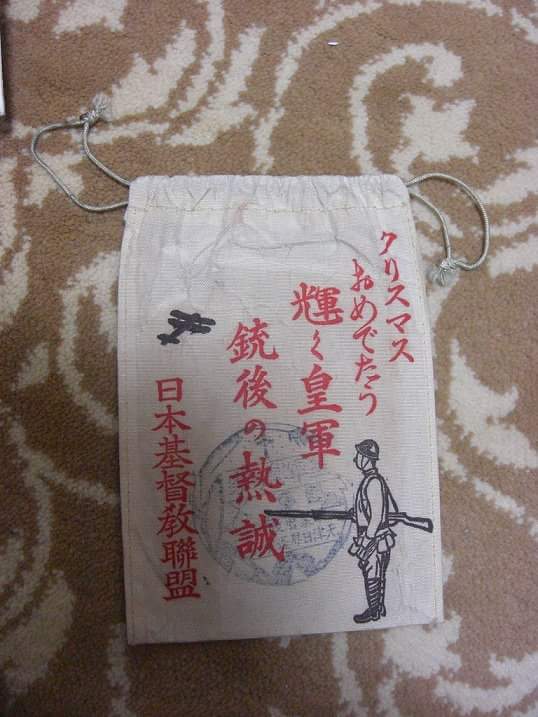 クリスマス
おめでたう
輝く皇軍
銃後の熱誠
日本基督教聯盟